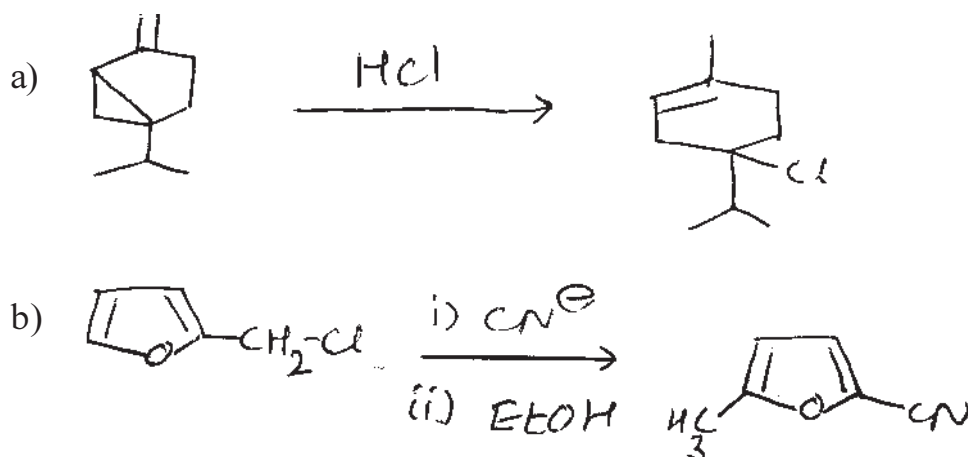 a)
HCl
Cl
b)
O
CH2-Cl
i) CN⊖
ii) EtOH
H3C
O
CN